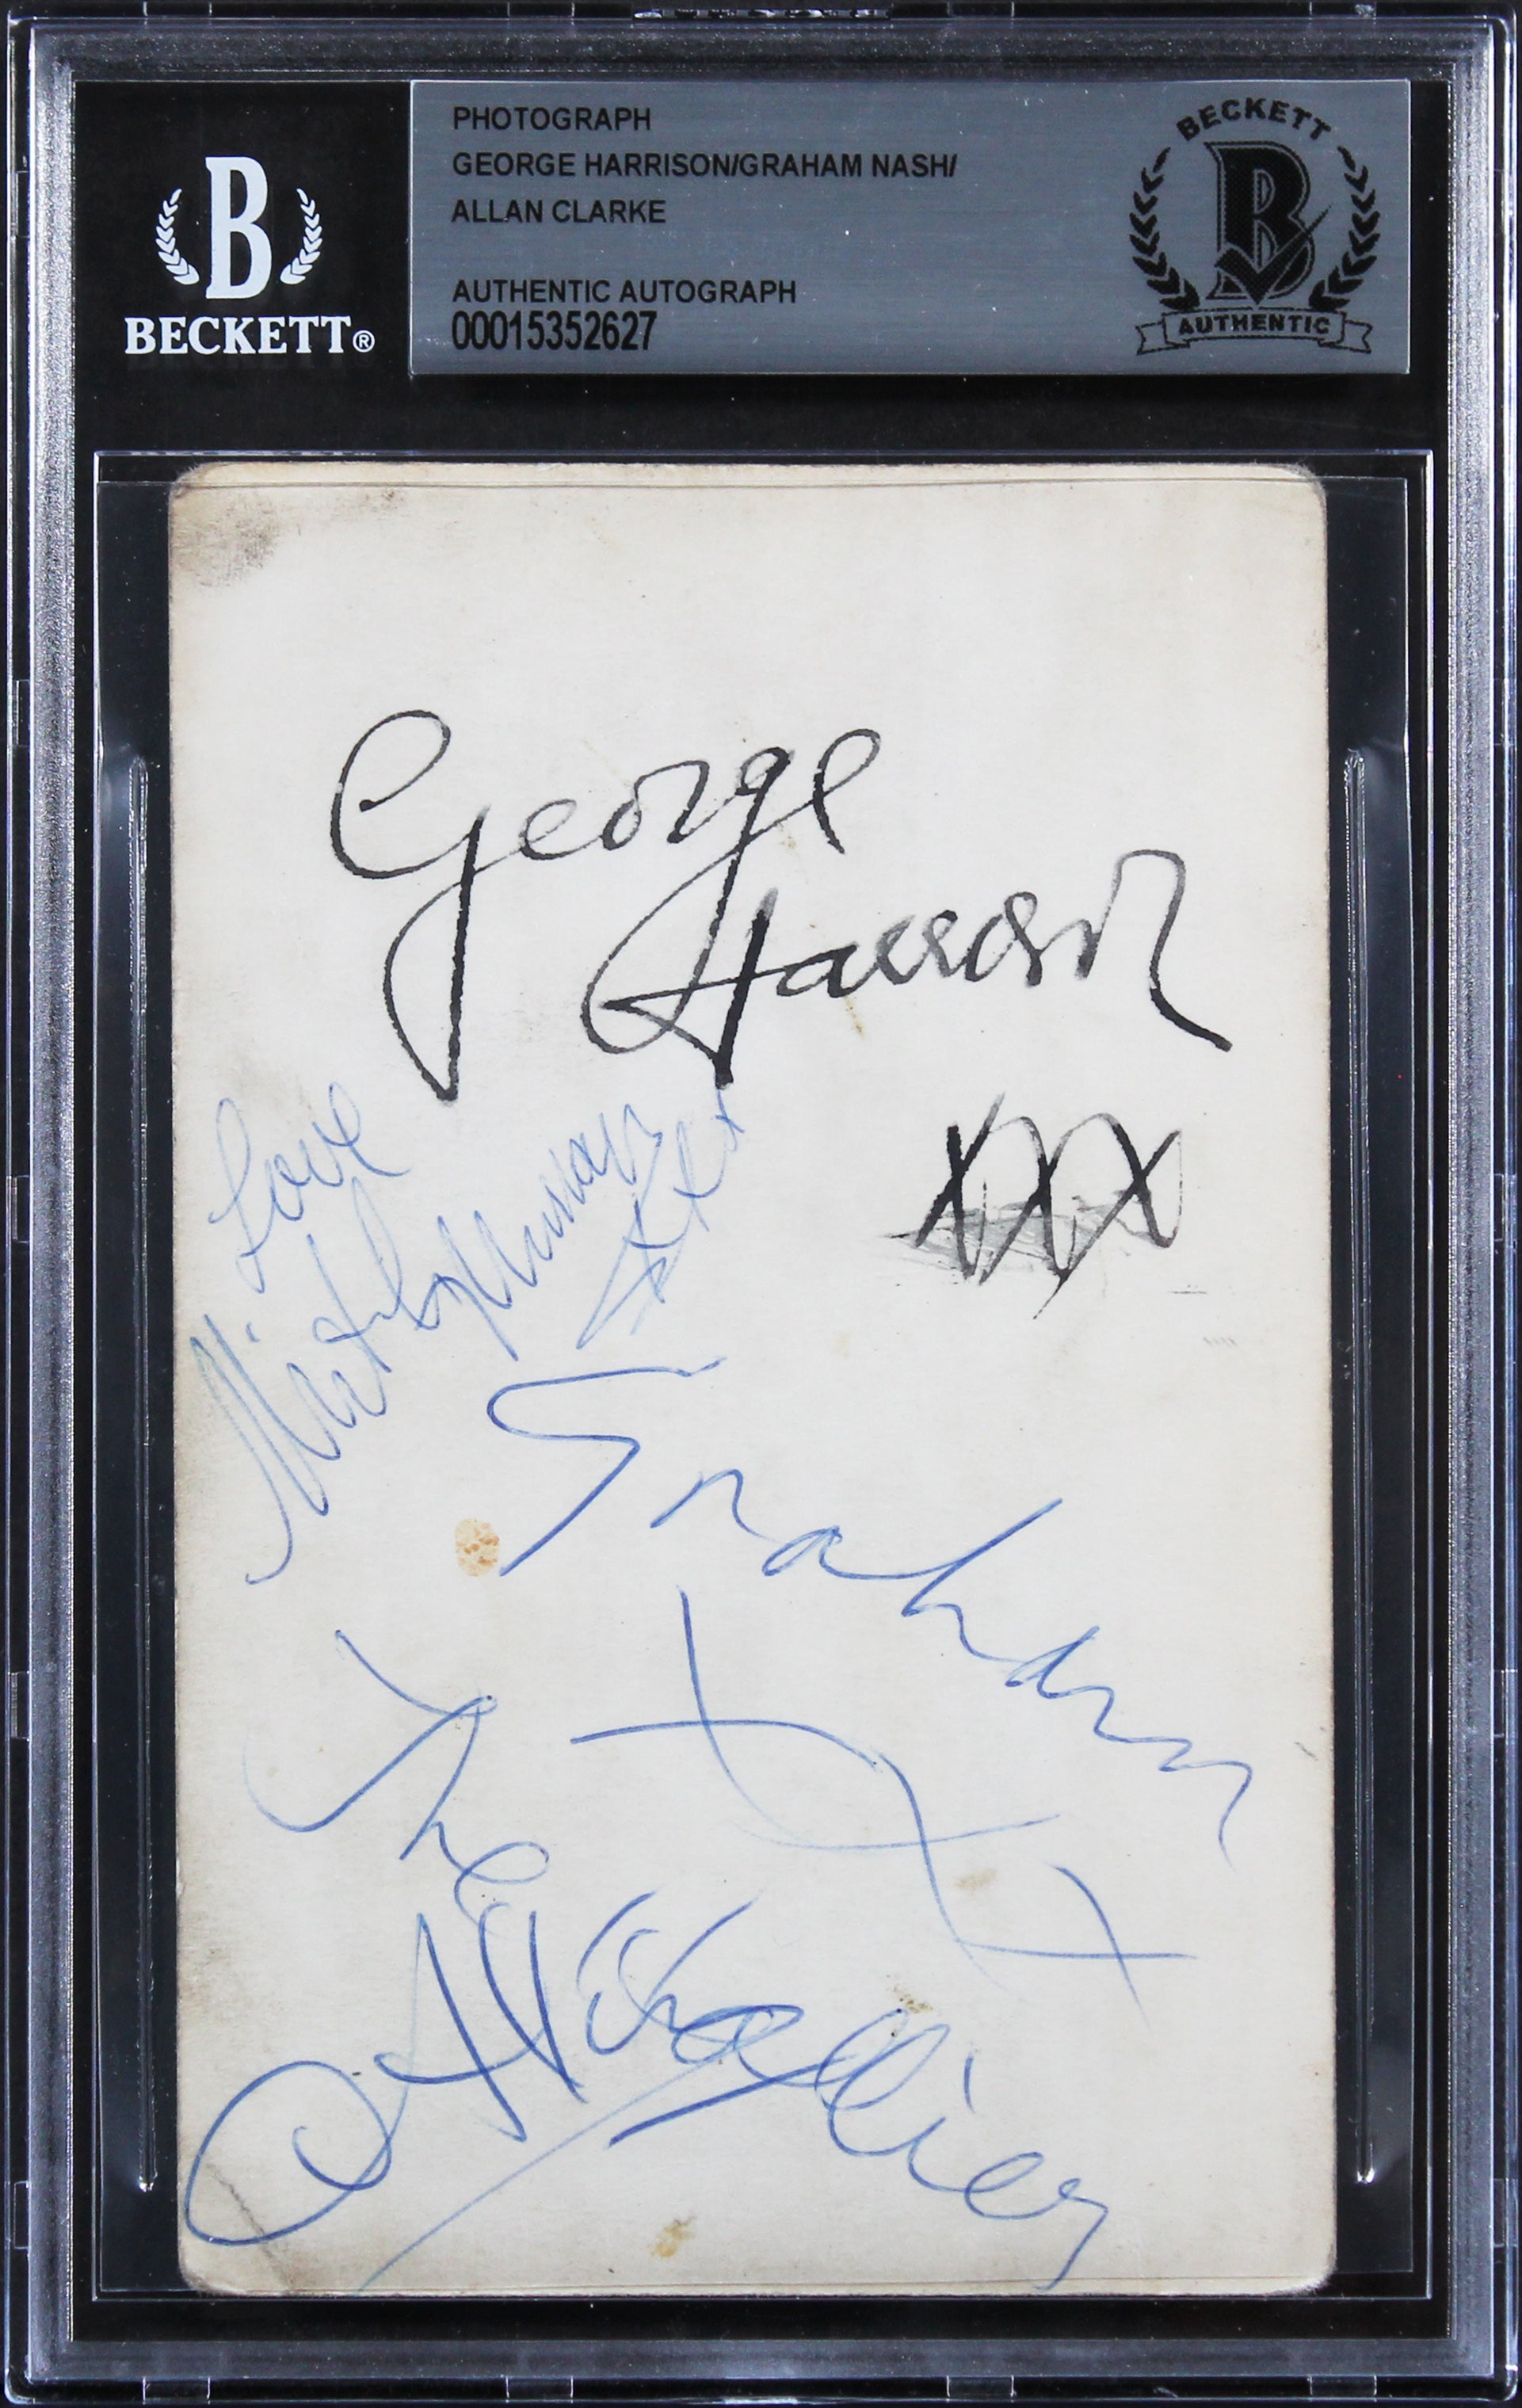 BECKETT
B
BECKETT®
PHOTOGRAPH
GEORGE HARRISON/GRAHAM NASH/
ALLAN CLARKE
AUTHENTIC AUTOGRAPH
00015352627
B
AUTHENTIC
George
Harrison
xxx
Love
Graham
xxx
The
Hollies